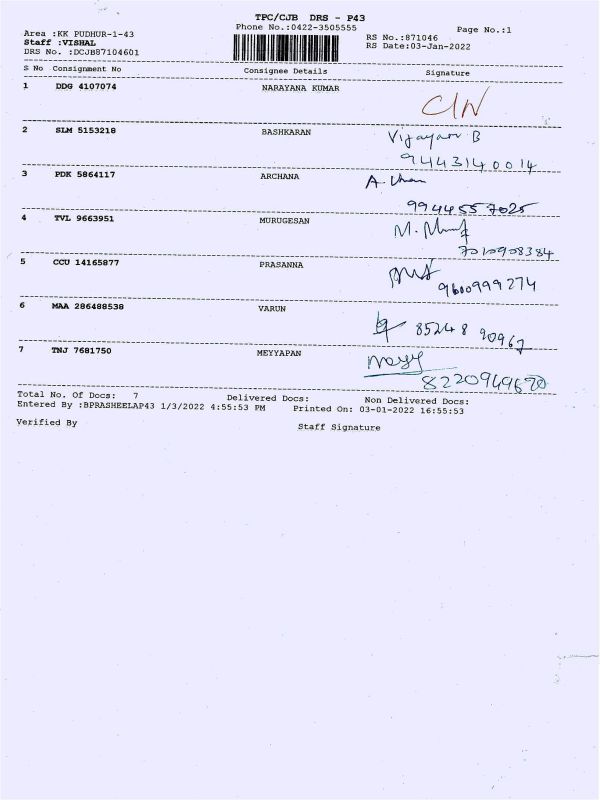 TPC/CJB DRS - P43
Phone No.:0422-3505555
Page No.:1
Area :KK PUDHUR-1-43
RS No.:871046
Staff :VISHAL
RS Date:03-Jan-2022
DRS No. :DCJB87104601
S No Consignment No Consignee Details Signature
1 DDG 4107074 NARAYANA KUMAR
2 SLM 5153218 BASHKARAN Vijayan B
9443140014
3 PDK 5864117 ARCHANA
9944557025
4 TVL 9663951 MURUGESAN
7010908384
5 CCU 14165877 PRASANNA
9600999274
6 MAA 286488538 VARUN
85248 90967
7 TNJ 7681750 MEYYAPAN
Total No. Of Docs: 7 Delivered Docs: Non Delivered Docs:
Entered By :BPRASHEELAP43 1/3/2022 4:55:53 PM Printed On: 03-01-2022 16:55:53
Verified By Staff Signature